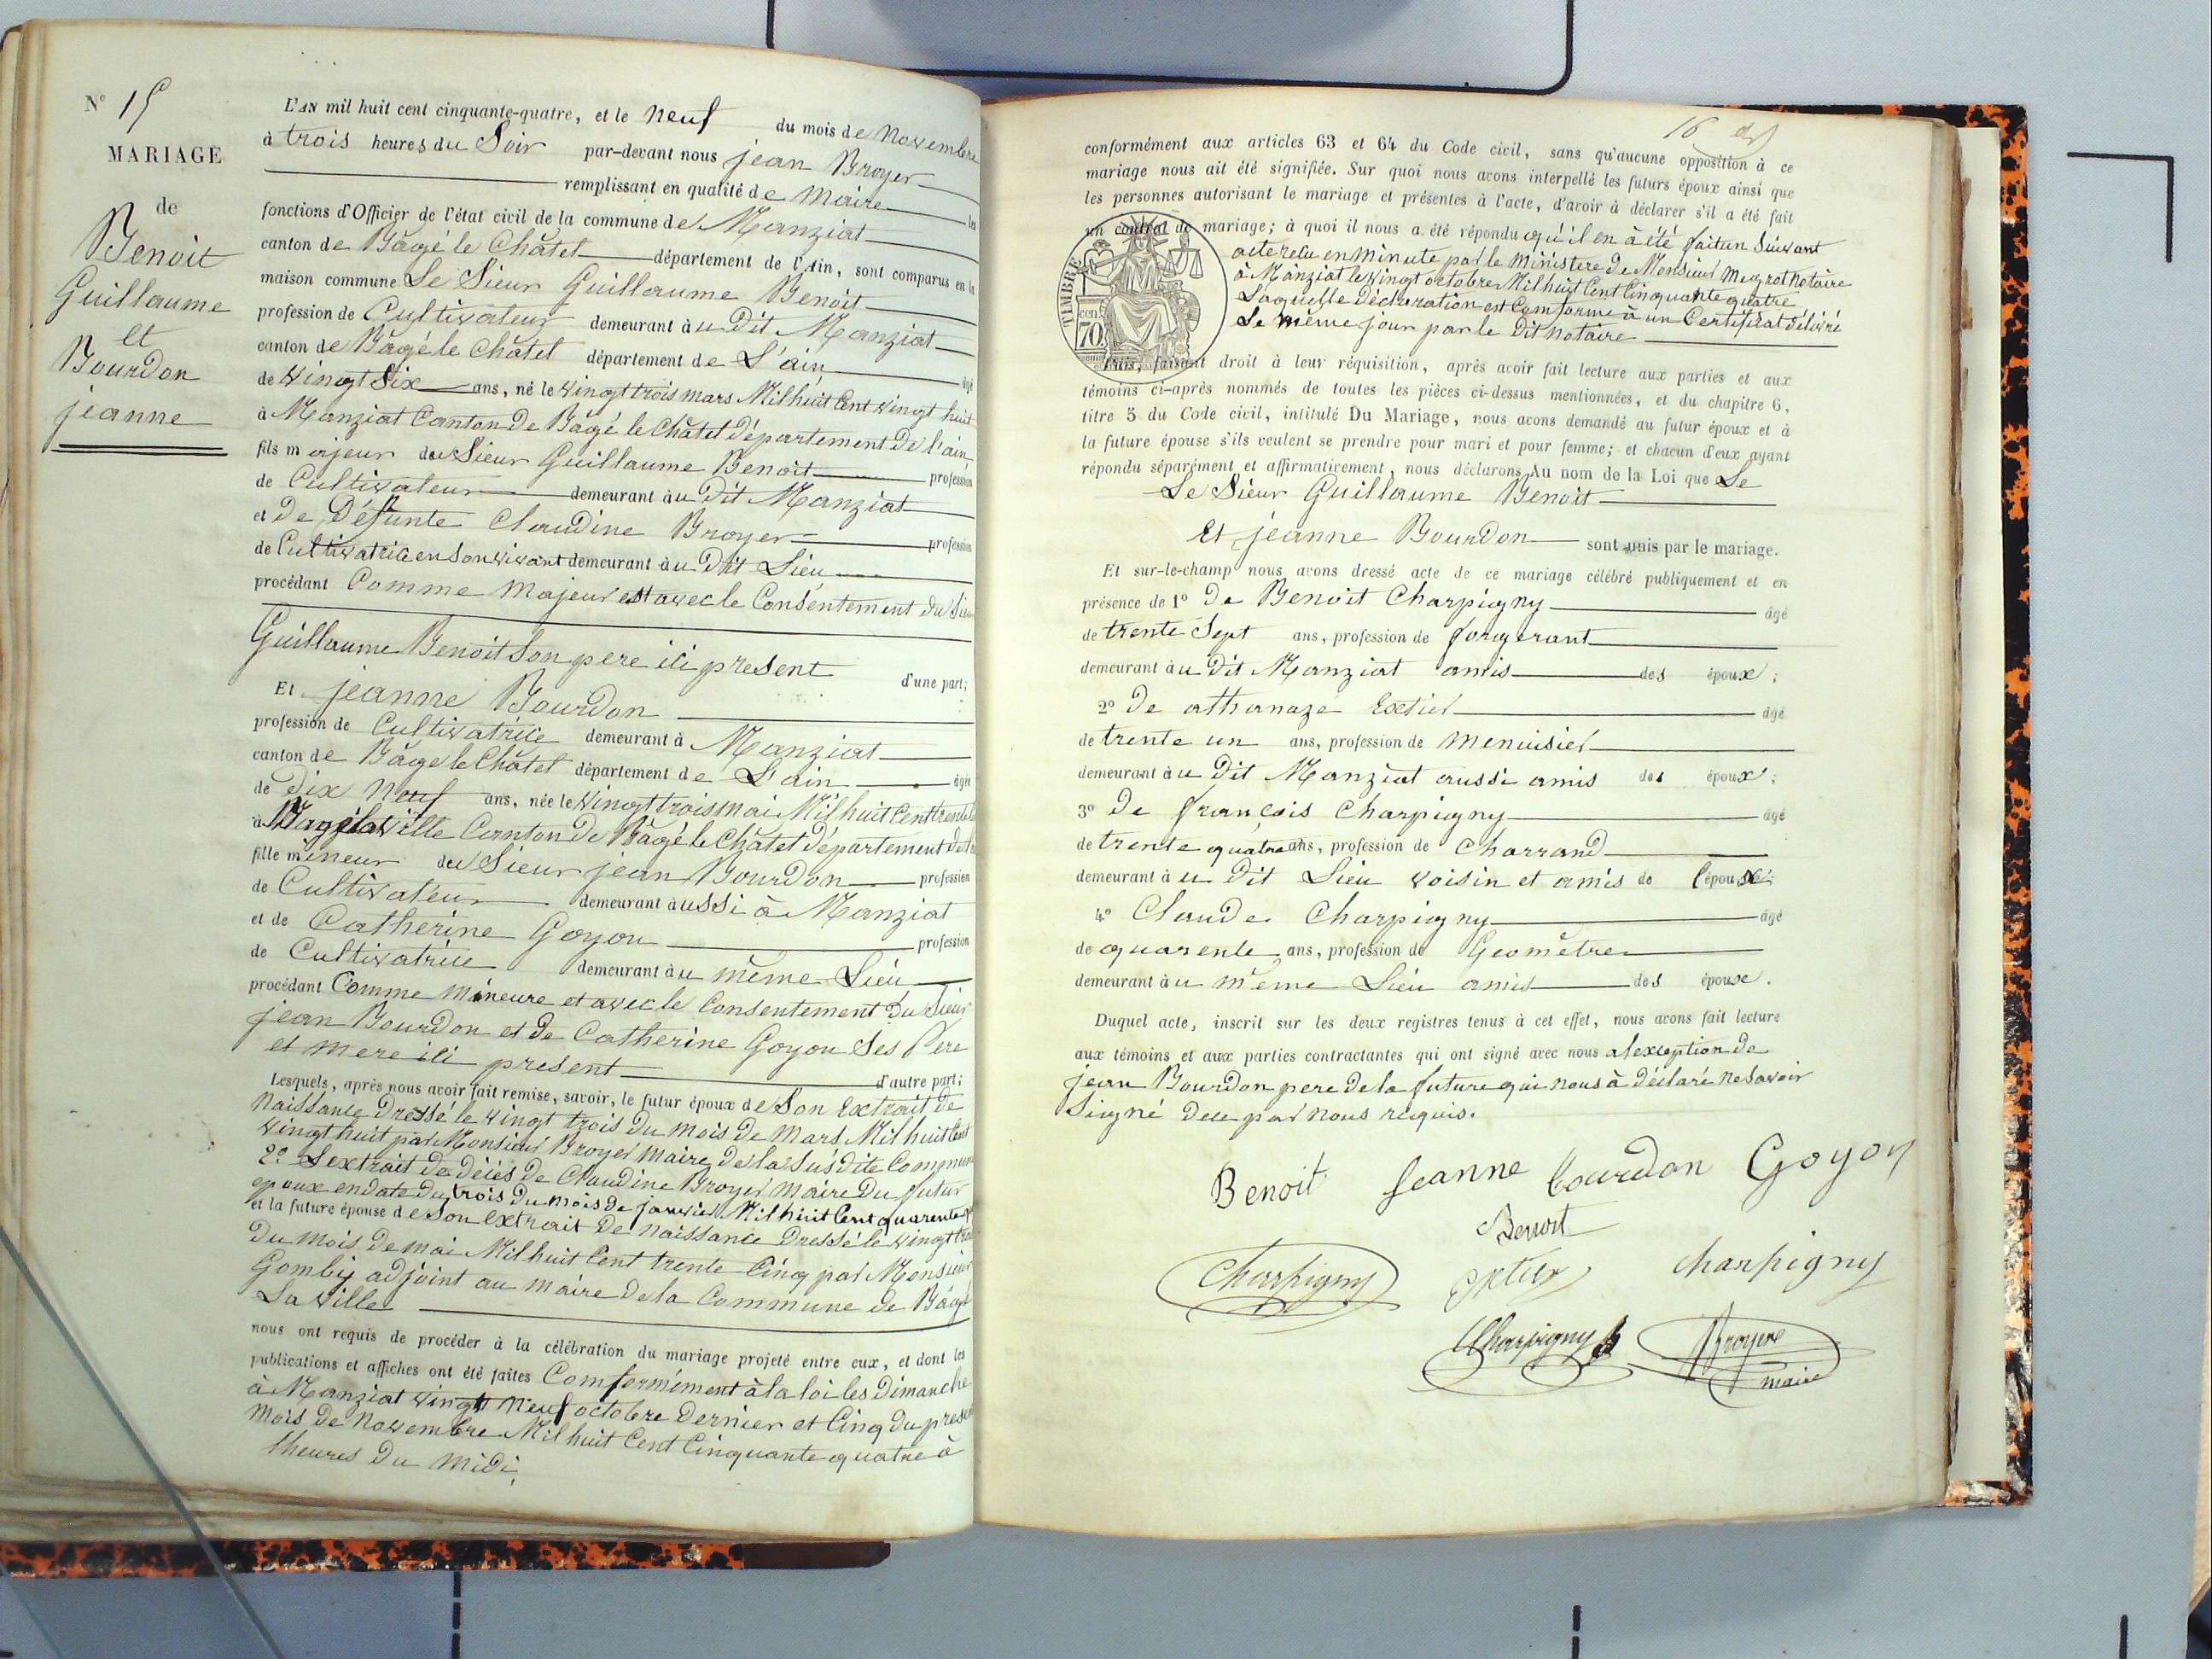 N° 15
MARIAGE
de
Benoit
Guillaume
et
Bourdon
jeanne
L'AN mil huit cent cinquante-quatre, et le neuf du mois de Novembre
à trois heures du Soir par-devant nous jean Broyer
remplissant en qualité de Maire les
fonctions d'Officier de l'état civil de la commune de Manziat
canton de Bâgé le Châtel département de l'Ain, sont comparus en la
maison commune Le Sieur Guillaume Benoit
profession de Cultivateur demeurant àu Dit Manziat
canton de Bâgé le Châtel département de L'ain âgé
de Vingt Six ans, né le Vingt trois mars Mil huit Cent Vingt huit
à Manziat Canton De Bâgé le Châtel Département De l'ain
fils majeur du Sieur Guillaume Benoit profession
de Cultivateur demeurant àu Dit Manziat
et De Défunte Claudine Broyer profession
de Cultivatrice en Son vivant demeurant àu Dit Lieu
procédant Comme Majeur et avec le Consentement du Sieur
Guillaume Benoit Son pere ici present d'une part;
Et jeanne Bourdon
profession de Cultivatrice demeurant à Manziat
canton de Bâgé le Châtel département de L'ain âgée
de Dix Neuf ans, née le Vingt trois mai Mil huit Cent trente
à Bagé la Ville Canton De Bâgé le Châtel Département
fille mineur du Sieur jean Bourdon profession
de Cultivateur demeurant àussi à Manziat
et de Catherine Goyon profession
de Cultivatrice demeurant àu même Lieu
procédant Comme Mineure et avec le Consentement Du Sieur
jean Bourdon et De Catherine Goyon Ses Père
et mere ici present d'autre part;
Lesquels, après nous avoir fait remise, savoir, le futur époux de Son Extrait De
Naissance Dressé le Vingt trois Du Mois De Mars Mil huit Cent
Vingt huit par Monsieur Broyer Maire De la Sus dite Commune
2° L'extrait de décès De Claudine Broyer Maire Du futur
epoux en date du trois du mois de janvier Mil huit Cent quarente
et la future épouse de Son Extrait De Naissance Dressé le Vingt trois
Du mois De mai Mil huit Cent trente Cinq par Monsieur
Gomby adjoint au maire De la Commune de Bâgé
La Ville
nous ont requis de procéder à la célébration du mariage projeté entre eux, et dont les
publications et affiches ont été faites Comformément à la loi les Dimanche
à Manziat Vingt Neuf octobre Dernier et Cinq Du present
Mois De Novembre Mil huit Cent Cinquante quatre à
lheures Du Midi
16
conformément aux articles 63 et 64 du Code civil, sans qu'aucune opposition à ce
mariage nous ait été signifiée. Sur quoi nous avons interpellé les futurs époux ainsi que
les personnes autorisant le mariage et présentes à l'acte, d'avoir à déclarer s'il a été fait
un contrat de mariage; à quoi il nous a été répondu qu'il en à été fait un Suivant
acte reçu en Minute par le Ministere De Monsieur Meyrot Notaire
à Manziat le Vingt octobre Mil huit Cent Cinquante quatre
Laquelle Déclaration est Comforme à un Certificat Délivré
Le même jour par le Dit Notaire
TIMBRE
70 cen.
Puis, faisant droit à leur réquisition, après avoir fait lecture aux parties et aux
témoins ci-après nommés de toutes les pièces ci-dessus mentionnées, et du chapitre 6,
titre 5 du Code civil, intitulé Du Mariage, nous avons demandé au futur époux et à
la future épouse s'ils veulent se prendre pour mari et pour femme; et chacun d'eux ayant
répondu séparément et affirmativement, nous déclarons Au nom de la Loi que Le
Le Sieur Guillaume Benoit
Et jeanne Bourdon sont unis par le mariage.
Et sur-le-champ nous avons dressé acte de ce mariage célébré publiquement et en
présence de 1° De Benoit Charpigny âgé
de trente Sept ans, profession de forgerant
demeurant àu Dit Manziat amis des époux;
2° De atthanaze Extier âgé
de trente un ans, profession de Menuisier
demeurant àu Dit Manziat aussi amis des époux;
3° De françois Charpigny âgé
de trente quatre ans, profession de Charrand
demeurant àu Dit Lieu voisin et amis de l'époux;
4° Claude Charpigny âgé
de quarente ans, profession de Géomètre
demeurant àu même Lieu amis des époux.
Duquel acte, inscrit sur les deux registres tenus à cet effet, nous avons fait lecture
aux témoins et aux parties contractantes qui ont signé avec nous al exception de
jean Bourdon pere De la future qui nous à Déclaré Ne Savoir
Signé Dece par Nous requis.
Benoit Jeanne bourdon Goyon
Benoit
Charpigny Extier charpigny
Charpigny Broyer
maire